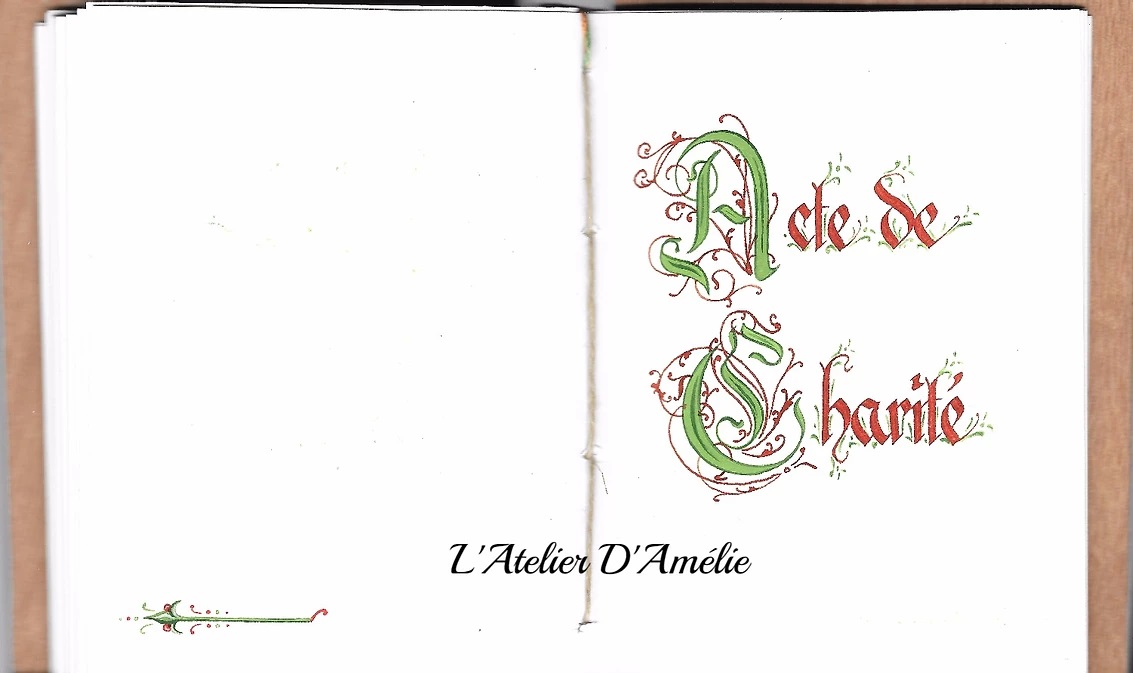 Acte de
Charité
L'Atelier D'Amélie